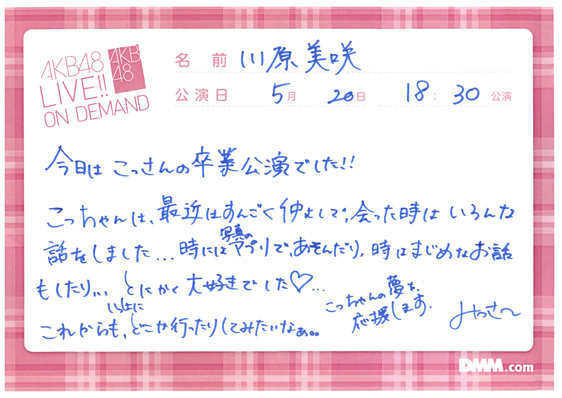 AKB48
LIVE!!
ON DEMAND
AKB
48
名 前 川原美咲
公演日 5月 20日 18:30 公演
今日は こっさんの卒業公演でした!!
こっちゃんは、最近はすんごく仲よしで、会った時は いろんな
話をしました... 時には写真のアプリで、あそんだり、時はまじめなお話
もしたり、、、とにかく 大好きでした♡...
これからも、いっしょにどこか行ったりしてみたいなぁ。。
こっちゃんの夢を、
応援します。
みっさ〜
DMM.com